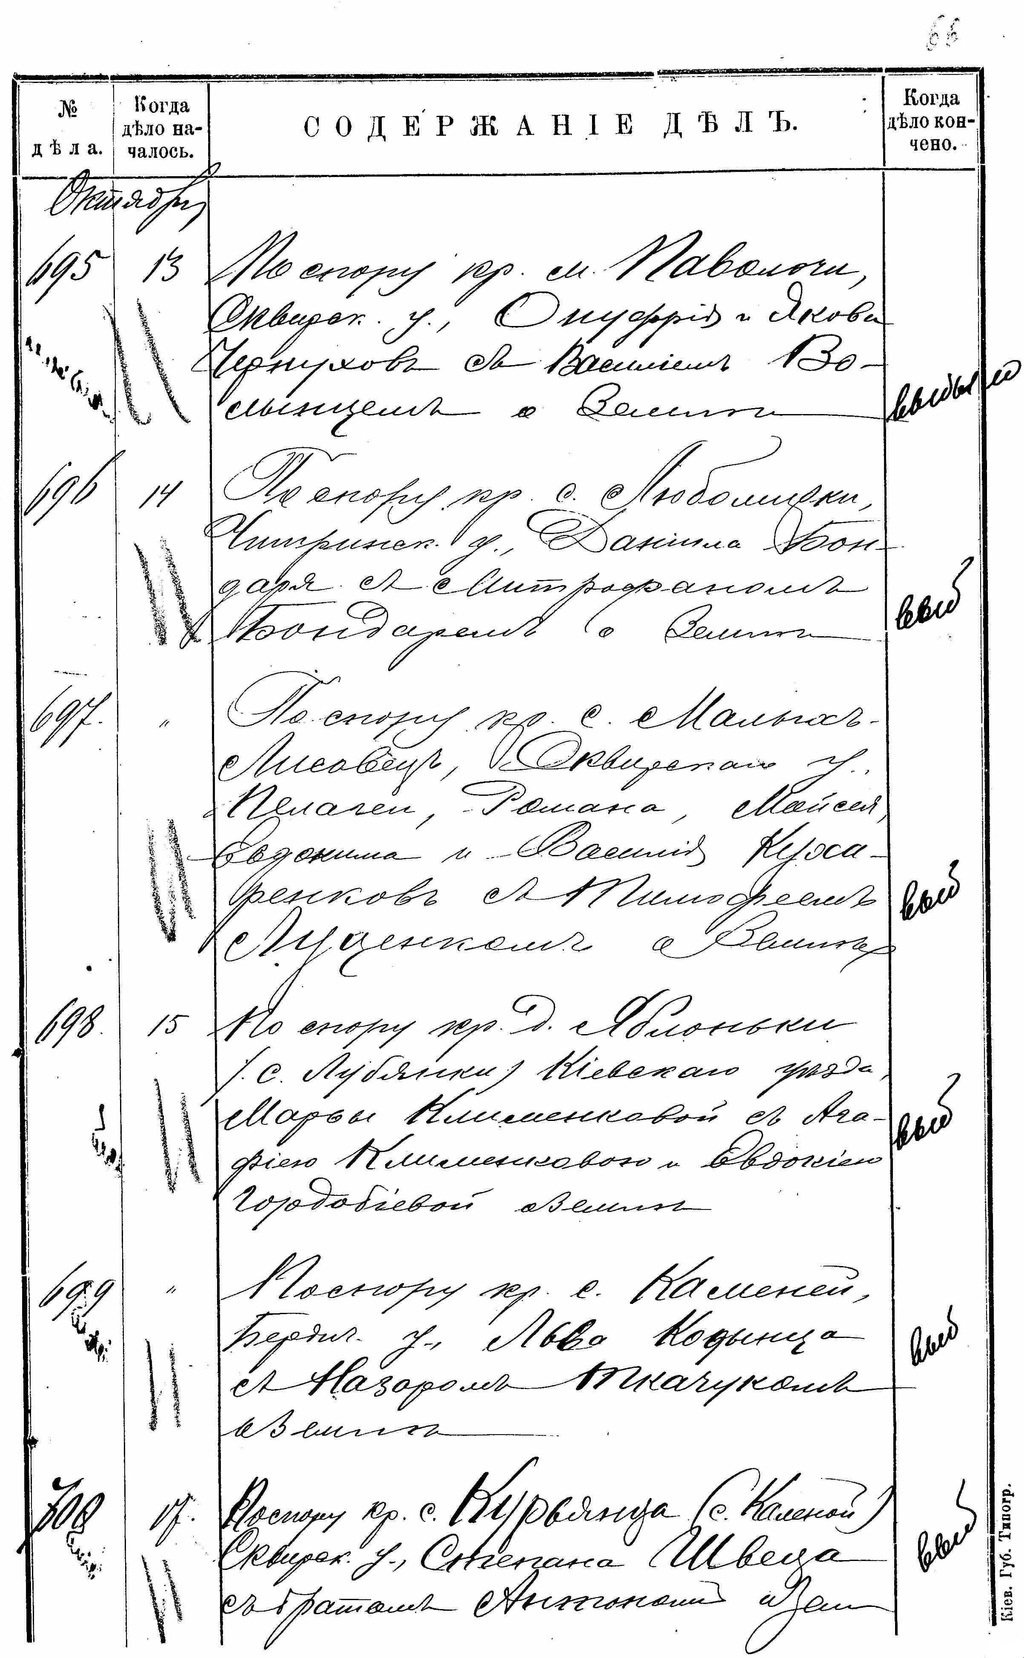 66
№ дѣла.
Когда дѣло началось.
СОДЕРЖАНІЕ ДѢЛЪ.
Когда дѣло кончено.
Октябрь
695 13 По спору кр. м. Паволочи,
Сквирск. у., Онуфрія и Якова
Чернуховъ съ Василіемъ Во-
лынцемъ о землѣ
выбыло
696 14 По спору кр. с. Любомирки,
Чигиринск. у., Даніила Бон-
даря съ Митрофаномъ
Бондаремъ о землѣ
выб
697. " По спору кр. с. Малыхъ-
Лисовецъ, Сквирскаго у.
Пелагеи, Романа, Мойсея,
Евдокима и Василія Куха-
ренковъ съ Тимофеемъ
Луценкомъ о землѣ
выб
698. 15 По спору кр. д. Яблоньки
/с. Лубянки/ Кіевскаго уѣзда,
Марьи Клименковой съ Ага-
фіею Клименковою и Евдокіею
Гордобіевой о землѣ
выб
699 " По спору кр. с. Каменей,
Бердич. у., Льва Кодынца
съ Назаромъ Ткачукомъ
о землѣ
выб
700 17. По спору кр. с. Курьянца (с. Каленой)
Сквирск. у., Степана Швеца
съ братомъ Антономъ о зем
выб
Кіев. Губ. Типогр.